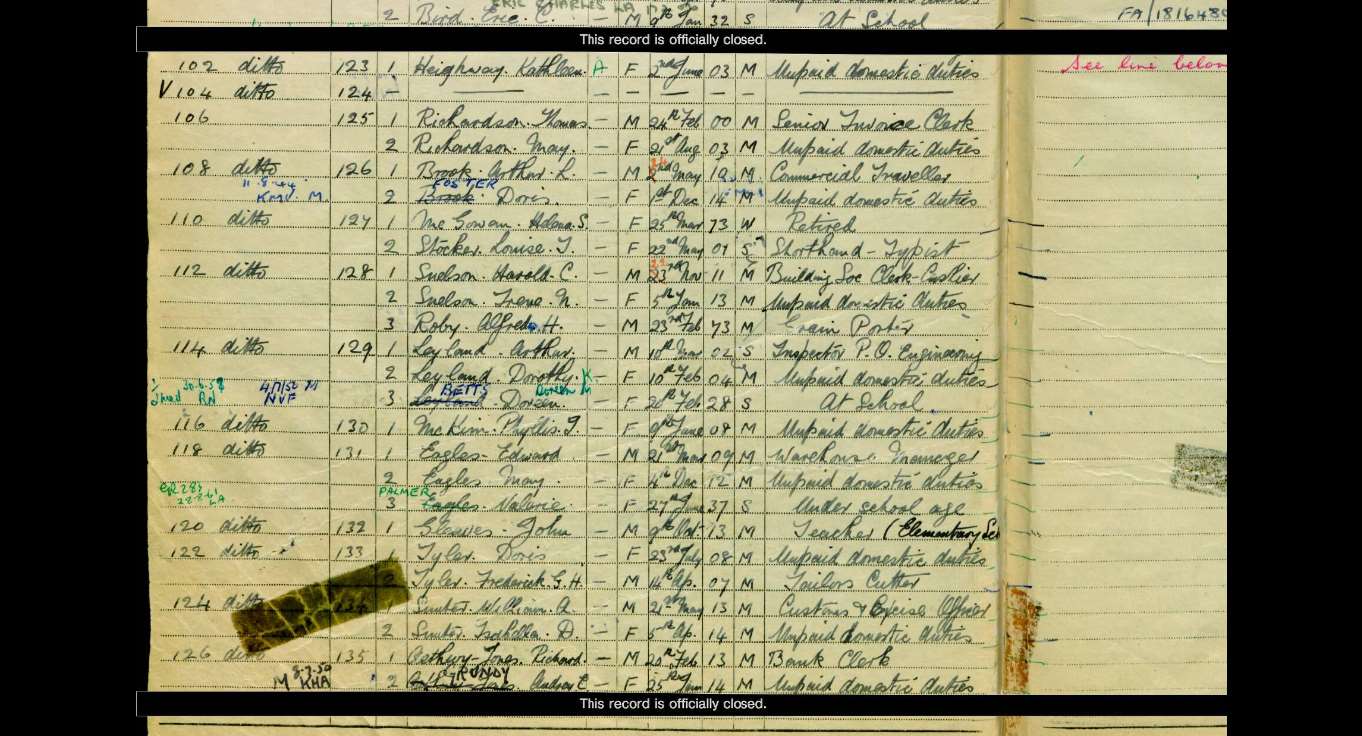 ERIC CHARLES LA
2 Bird. Eric. C. — M 9th Jan 32 S At School FA/1816486
This record is officially closed.
102 ditto 123 1 Heighway Kathleen. A F 2nd June 03 M Unpaid domestic duties See line below
V 104 ditto 124 — — — — — — —
106 125 1 Richardson. Thomas — M 24th Feb 00 M Senior Invoice Clerk
2 Richardson. May. — F 21st Aug 03 M Unpaid domestic duties
108 ditto 126 1 Brook. Arthur L. — M 2nd May 19 M Commercial Traveller
11.8.44 FOSTER
KMV. M. 2 Brook Doris — F 1st Dec 14 M Unpaid domestic duties
110 ditto 127 1 Mc Gowan. Helena. S. — F 25th Mar 73 W Retired
2 Stocker. Louise. T. — F 22nd May 01 S Shorthand - Typist
112 ditto 128 1 Snelson. Harold. C. — M 23rd Nov 11 M Building Soc Clerk-Cashier
2 Snelson. Irene. N. — F 5th Jan 13 M Unpaid domestic duties
3 Roby. Alfred. H. — M 23rd Feb 73 M Grain Porter
114 ditto 129 1 Leyland. Arthur. — M 10th Mar 02 S Inspector P.O. Engineering
2 Leyland. Dorothy. K — F 10th Feb 04 M Unpaid domestic duties
30.6.52 RN 4/7/52 M NVF BETTS Doreen M
3 Leyland Doreen — F 20th Feb 28 S At School
116 ditto 130 1 McKim. Phyllis. — F 9th June 08 M Unpaid domestic duties
118 ditto 131 1 Eagles Edward — M 21st Mar 09 M Warehouse Manager
2 Eagles May. — F 4th Dec 12 M Unpaid domestic duties
PALMER
3 Eagles Valerie — F 27th June 37 S Under school age
120 ditto 132 1 Gleaves. John — M 9th Oct 13 M Teacher (Elementary Sc
122 ditto 133 Tyler. Doris — F 23rd July 08 M Unpaid domestic duties
2 Tyler. Frederick. G. H. — M 14th Ap. 07 M Tailors Cutter
124 ditto 134 William. A. — M 21st May 13 M Customs & Excise Officer
2 Isabella. D. — F 5th Ap. 14 M Unpaid domestic duties
126 ditto 135 1 Astbury-Jones. Richard — M 25th Feb 13 M Bank Clerk
M KHA 2 Audrey E — F 25th Jan 14 M Unpaid domestic duties
This record is officially closed.